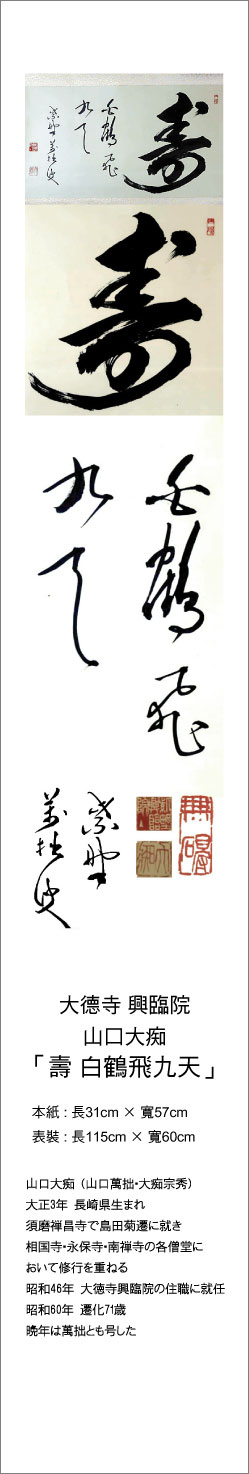 壽
白鶴飛
九天
紫野
萬拙叟
壽
白鶴飛
九天
無礙
紫野
萬拙叟
大徳寺 興臨院
山口大痴
「壽 白鶴飛九天」
本紙 : 長31cm × 寬57cm
表裝 : 長115cm × 寬60cm
山口大痴 (山口萬拙・大痴宗秀)
大正3年 長崎県生まれ
須磨禅昌寺で島田菊遷に就き
相国寺・永保寺・南禅寺の各僧堂に
おいて修行を重ねる
昭和46年 大徳寺興臨院の住職に就任
昭和60年 遷化71歳
晩年は萬拙とも号した